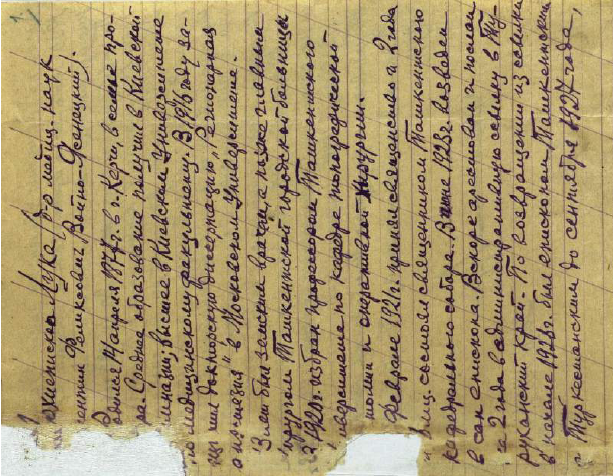 Архиепископ Лука /д-р медиц. наук
Феликсович Войно-Ясенецкий/.
Родился 14 апреля 1877 г. в г. Керчи, в семье про-
ра. Среднее образование получил в Киевской
гимназии; высшее в Киевском Университете
по медицинскому факультету. В 1916 году за-
щитил докторскую диссертацию „Регионарная
анестезия" в Московском Университете.
Земским врачом, а позже главным
хирургом Ташкентской городской больницы
В 1920г. избран профессором Ташкентского
Университета по кафедре топографической
анатомии и оперативной хирургии.
феврале 1921г. принял священство и 2 года
состоял священником Ташкентского
кафедрального собора. В 1923г. возведен
в сан епископа. Вскоре арестован и послан
на 2 года в административную ссылку в Ту-
руханский край. По возвращении из ссылки
в начале 1926г. был епископом Ташкентским
и Туркестанским до сентября 1927 года,